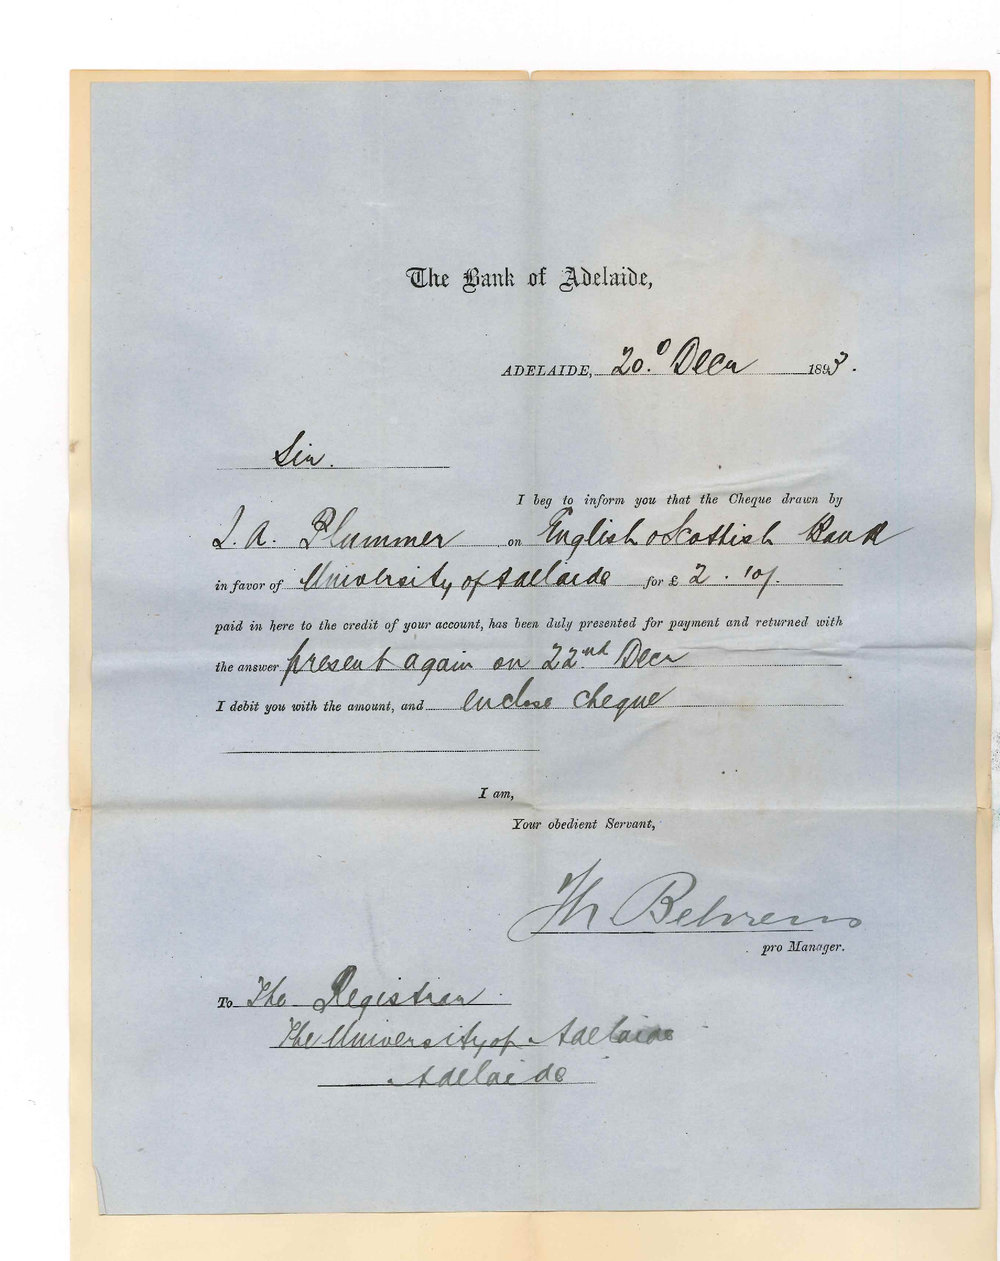 The Bank of Adelaide,
ADELAIDE, 20.º Decr 1893.
Sir.
I beg to inform you that the Cheque drawn by
J. A. Plummer on English & Scottish Bank
in favor of University of Adelaide for £ 2 . 10/.
paid in here to the credit of your account, has been duly presented for payment and returned with
the answer present again on 22nd Decr
I debit you with the amount, and enclose cheque
I am,
Your obedient Servant,
Th Behrens
pro Manager.
To The Registrar
The University of Adelaide
Adelaide